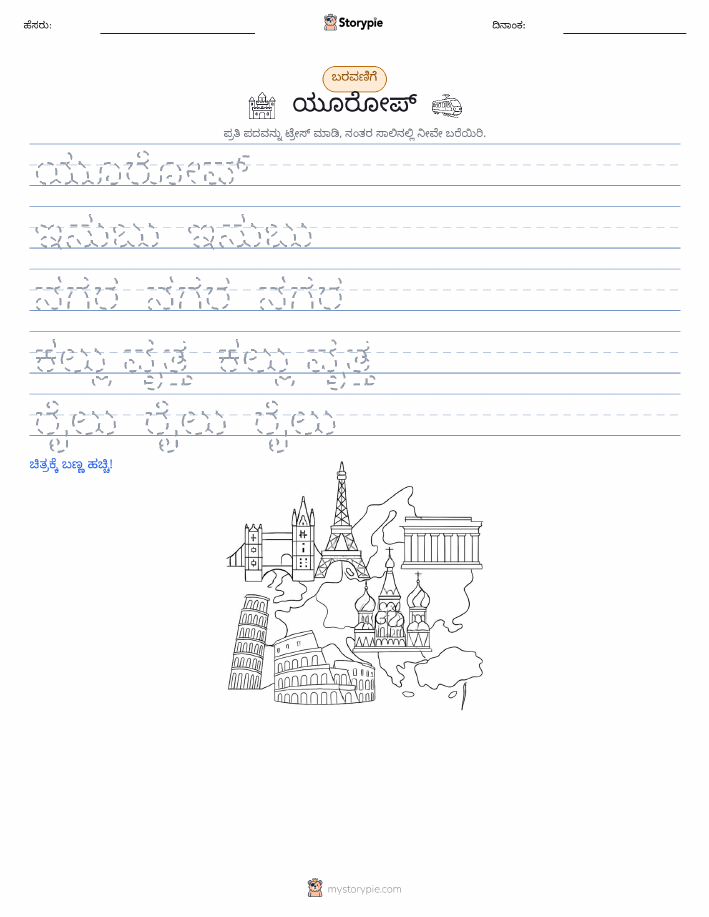 ಹೆಸರು:
Storypie
ದಿನಾಂಕ:
ಬರವಣಿಗೆ
ಯೂರೋಪ್
ಪ್ರತಿ ಪದವನ್ನು ಟ್ರೇಸ್ ಮಾಡಿ, ನಂತರ ಸಾಲಿನಲ್ಲಿ ನೀವೇ ಬರೆಯಿರಿ.
ಯೂರೋಪ್
ನಗರ ನಗರ ನಗರ
ರೈಲು ರೈಲು ರೈಲು
ಚಿತ್ರಕ್ಕೆ ಬಣ್ಣ ಹಚ್ಚಿ!
mystorypie.com